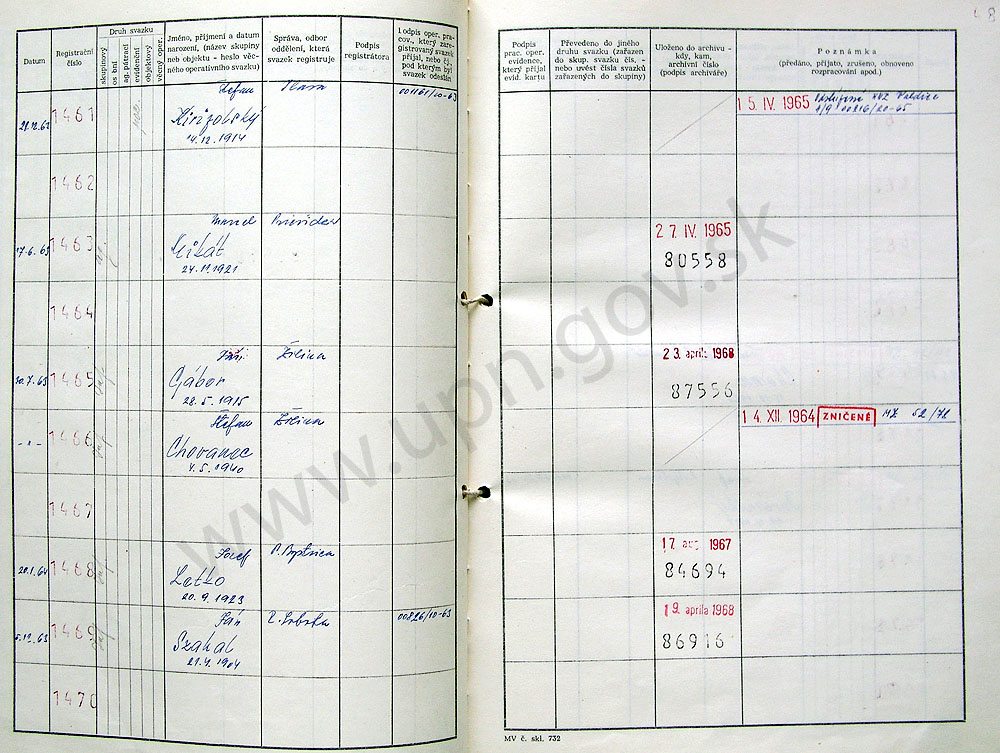 8
Datum
Registrační
číslo
Druh svazku
skupinový
os bní
ag. pátrací
evidenční
objektový
věcný oper.
Jméno, příjmení a datum
narození, (název skupiny
neb objektu - heslo věc-
ného operativního svazku)
Správa, odbor
oddělení, která
svazek registruje
Podpis
registrátora
Podpis oper. pra-
cov., který zare-
gistrovaný svazek
přijal, nebo čj.,
pod kterým byl
svazek odeslán
Podpis
prac. oper.
evidence,
který přijal
evid. kartu
Převedeno do jiného
druhu svazku (zařazen
do skup. svazku čís. -
nebo uvést čísla svazků
zařazených do skupiny)
Uloženo do archivu -
kdy, kam,
archivní číslo
(podpis archiváře)
Poznámka
(předáno, přijato, zrušeno, obnoveno
rozpracování apod.)
1461 Štefan
4.12.1914
15. IV. 1965
1462
17.6.63 1463
24.11.1921
27. IV. 1965
80558
1464
30.7.63 1465 Žilina
Gábor
28.5.1915
23. apríl 1968
87556
-"- 1466 Štefan Žilina
Chovanec
4.5.1940
14. XII. 1964 ZNIČENÉ 52/72
1467
20.1.64 1468 Jozef P. Bystrica
Letko
20.9.1923
17. aug 1967
84694
1469 Ján 00826/10-63
Szakal
21.4.1904
19. apríla 1968
86916
1470
MV č. skl. 732
www.upn.gov.sk